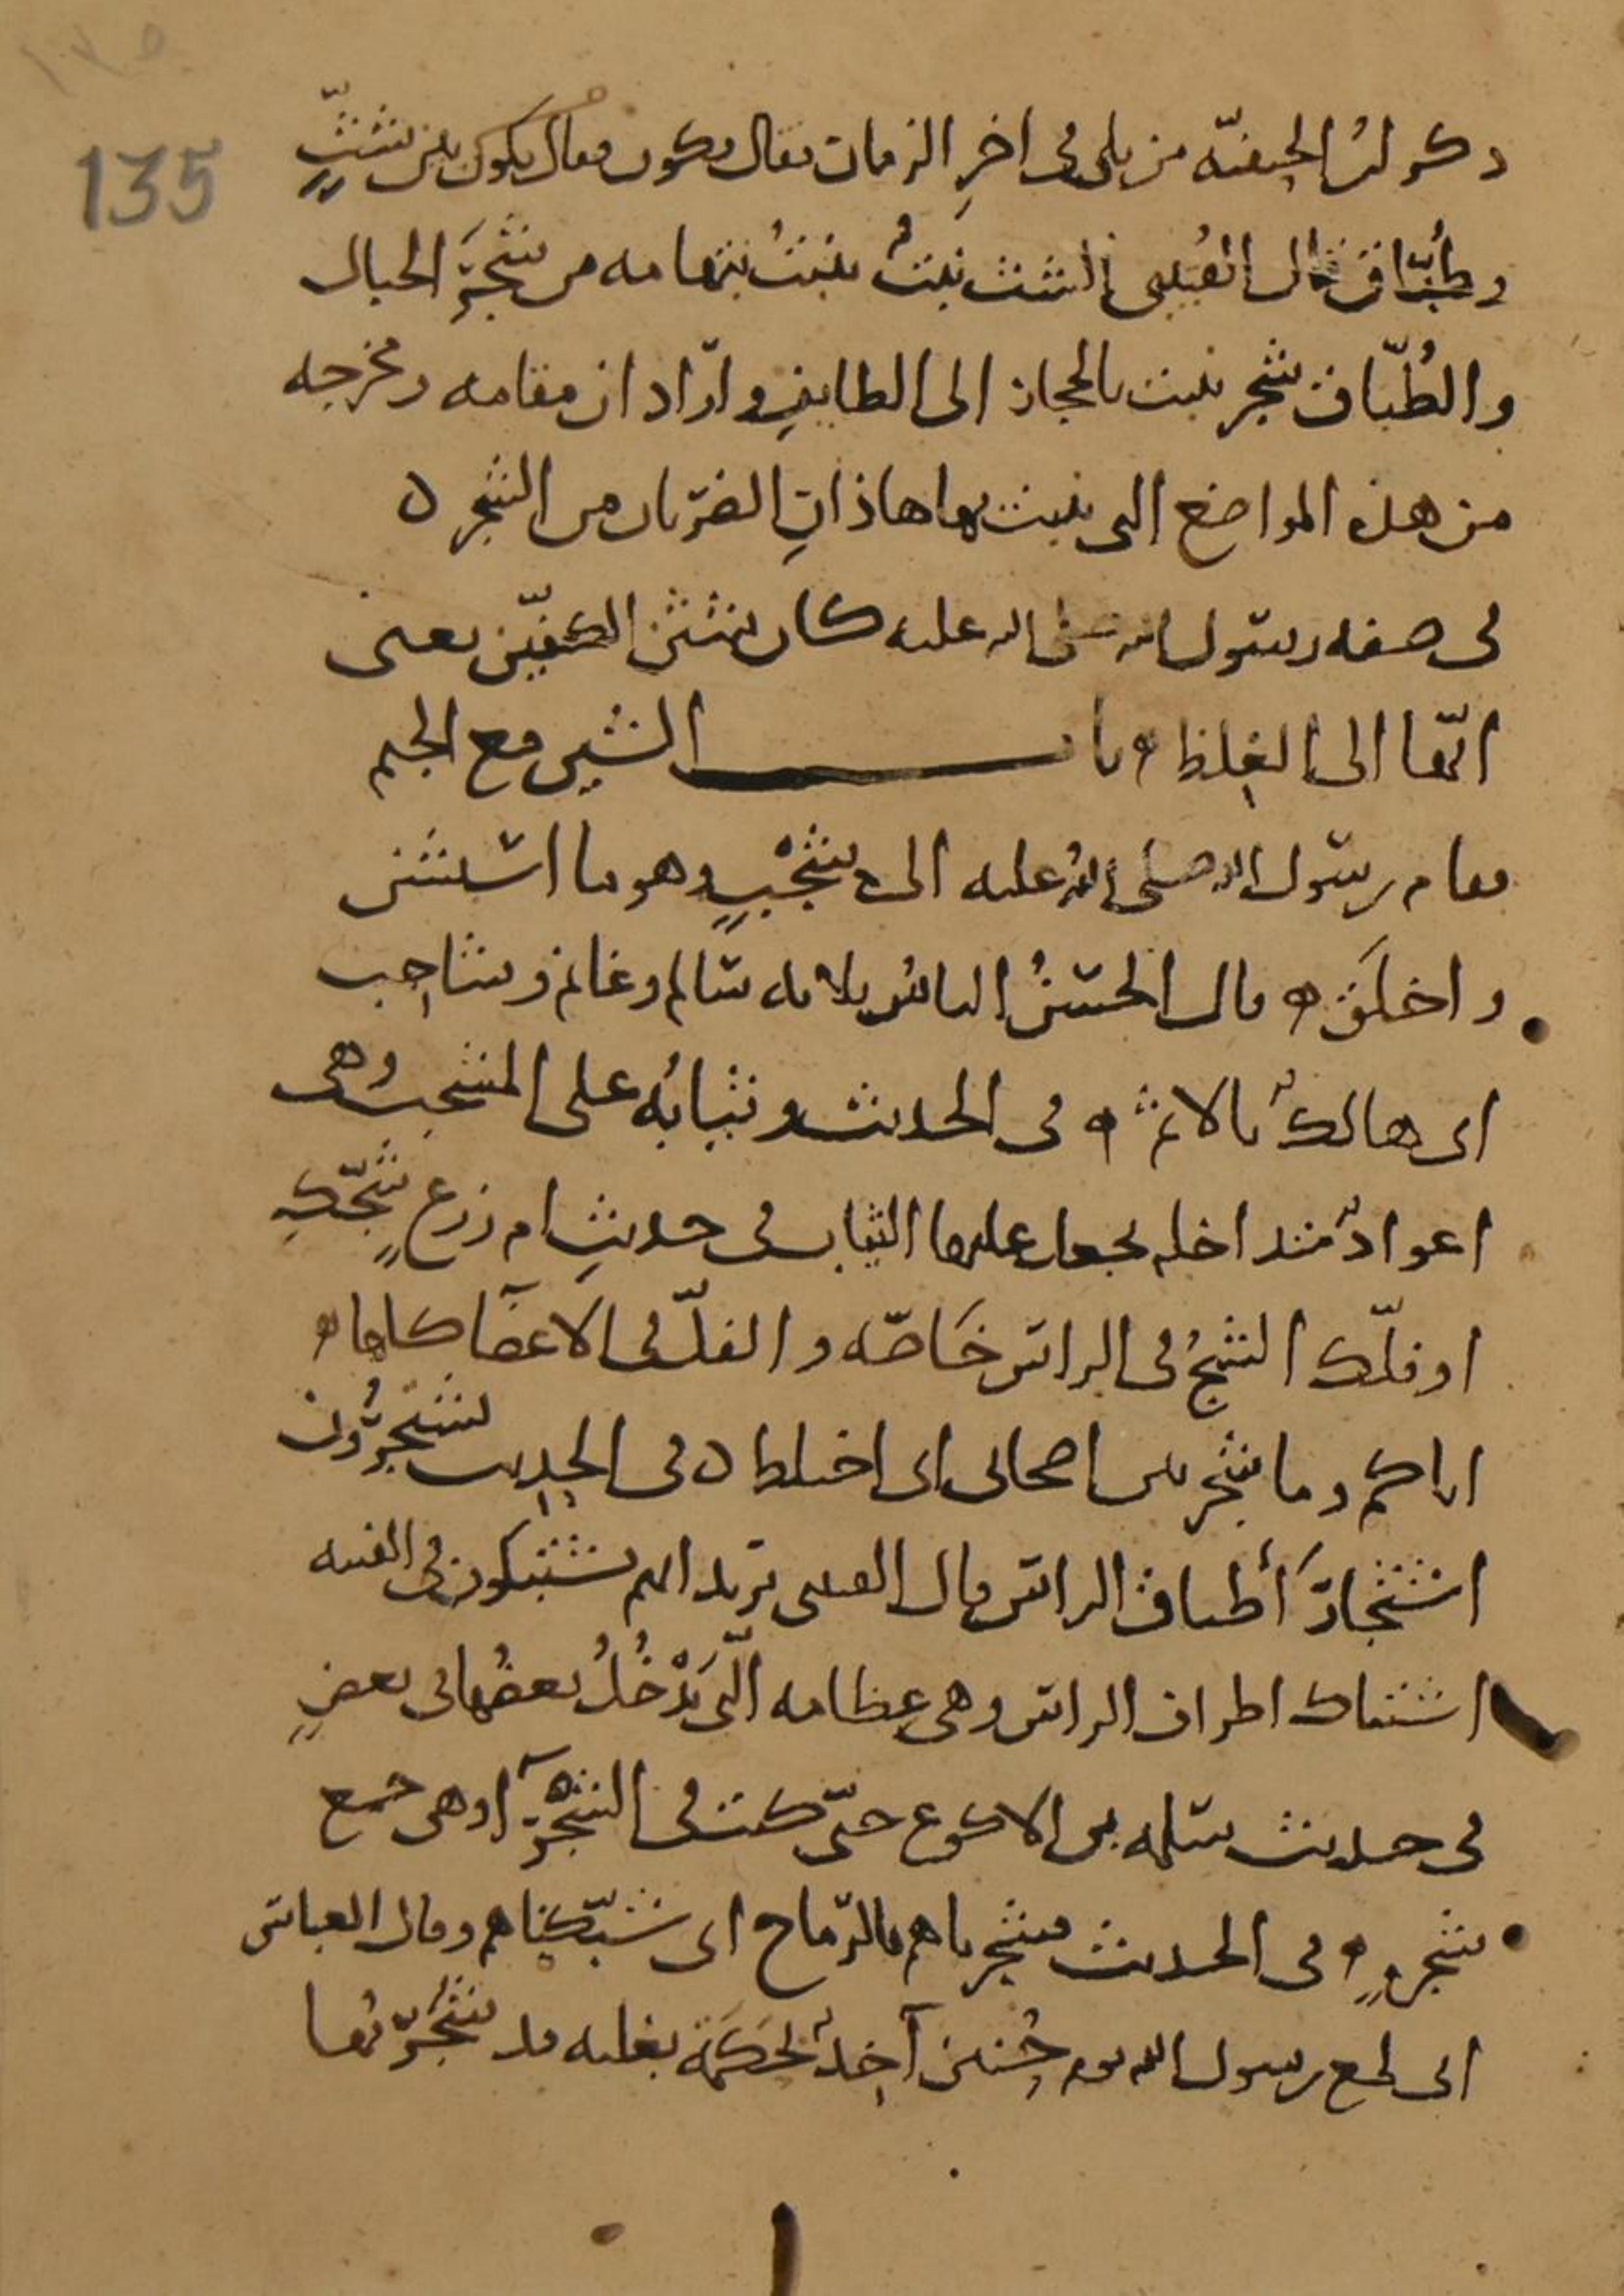 ١٣٥
135
ذكر ابن الحنفيّه من يلي في اخرِ الزمان فقال ويكون فقال يكون بين شَثٍّ
وطُبّاق قال القتيبي الشث نبتٌ ينبتُ بتهامه من شَجَر الجبال
والطُبّاق شجر ينبت بالحجاز الى الطايفِ واراد ان مقامه ومخرجه
من هذه المواضع التي ينبت بها هاذانِ الضربان من الشجر ه
في صفه رسول الله صلى الله عليه كان شثن الكفّين يعني
انّها الى الغلظ ه باب الشين مع الجيم
فقام رسول الله صلى الله عليه الى شَجْبٍ وهو ما استشن
واخلَق ه قال الحسنُ الناسُ ثلاثه سالم وغانم وشاجب
اي هالكٌ بالاثم ه في الحديث وثيابُه على المشجب وهي
اعوادٌ متداخله يجعل عليها الثياب في حديثِ ام زرعٍ شجّكِ
او فلّك الشجُّ في الراس خَاصّه والفلّ في الاعضآ كلها ه
اياكم وما شجر بين اصحابي اي اختلط ه في الحديث يشتجرُون
اشتجارَ أطباق الراس قال القتيبي يريد انهم يشتبكون في الفتنه
اشتباك اطراف الراس وهي عظامه الّتي يَدْخُلُ بعضُها في بعضٍ
في حديث سلمه بن الاكوع حتّى كنت في الشجْرَآ وهي جمع
شجرهٍ ه في الحديث فشجرناهم بالرّماح اي شبّكناهم وقال العباس
اني لمع رسول الله يوم حُنين آخِذٌ بحَكَمَة بغلته قد شَجَرْتُها